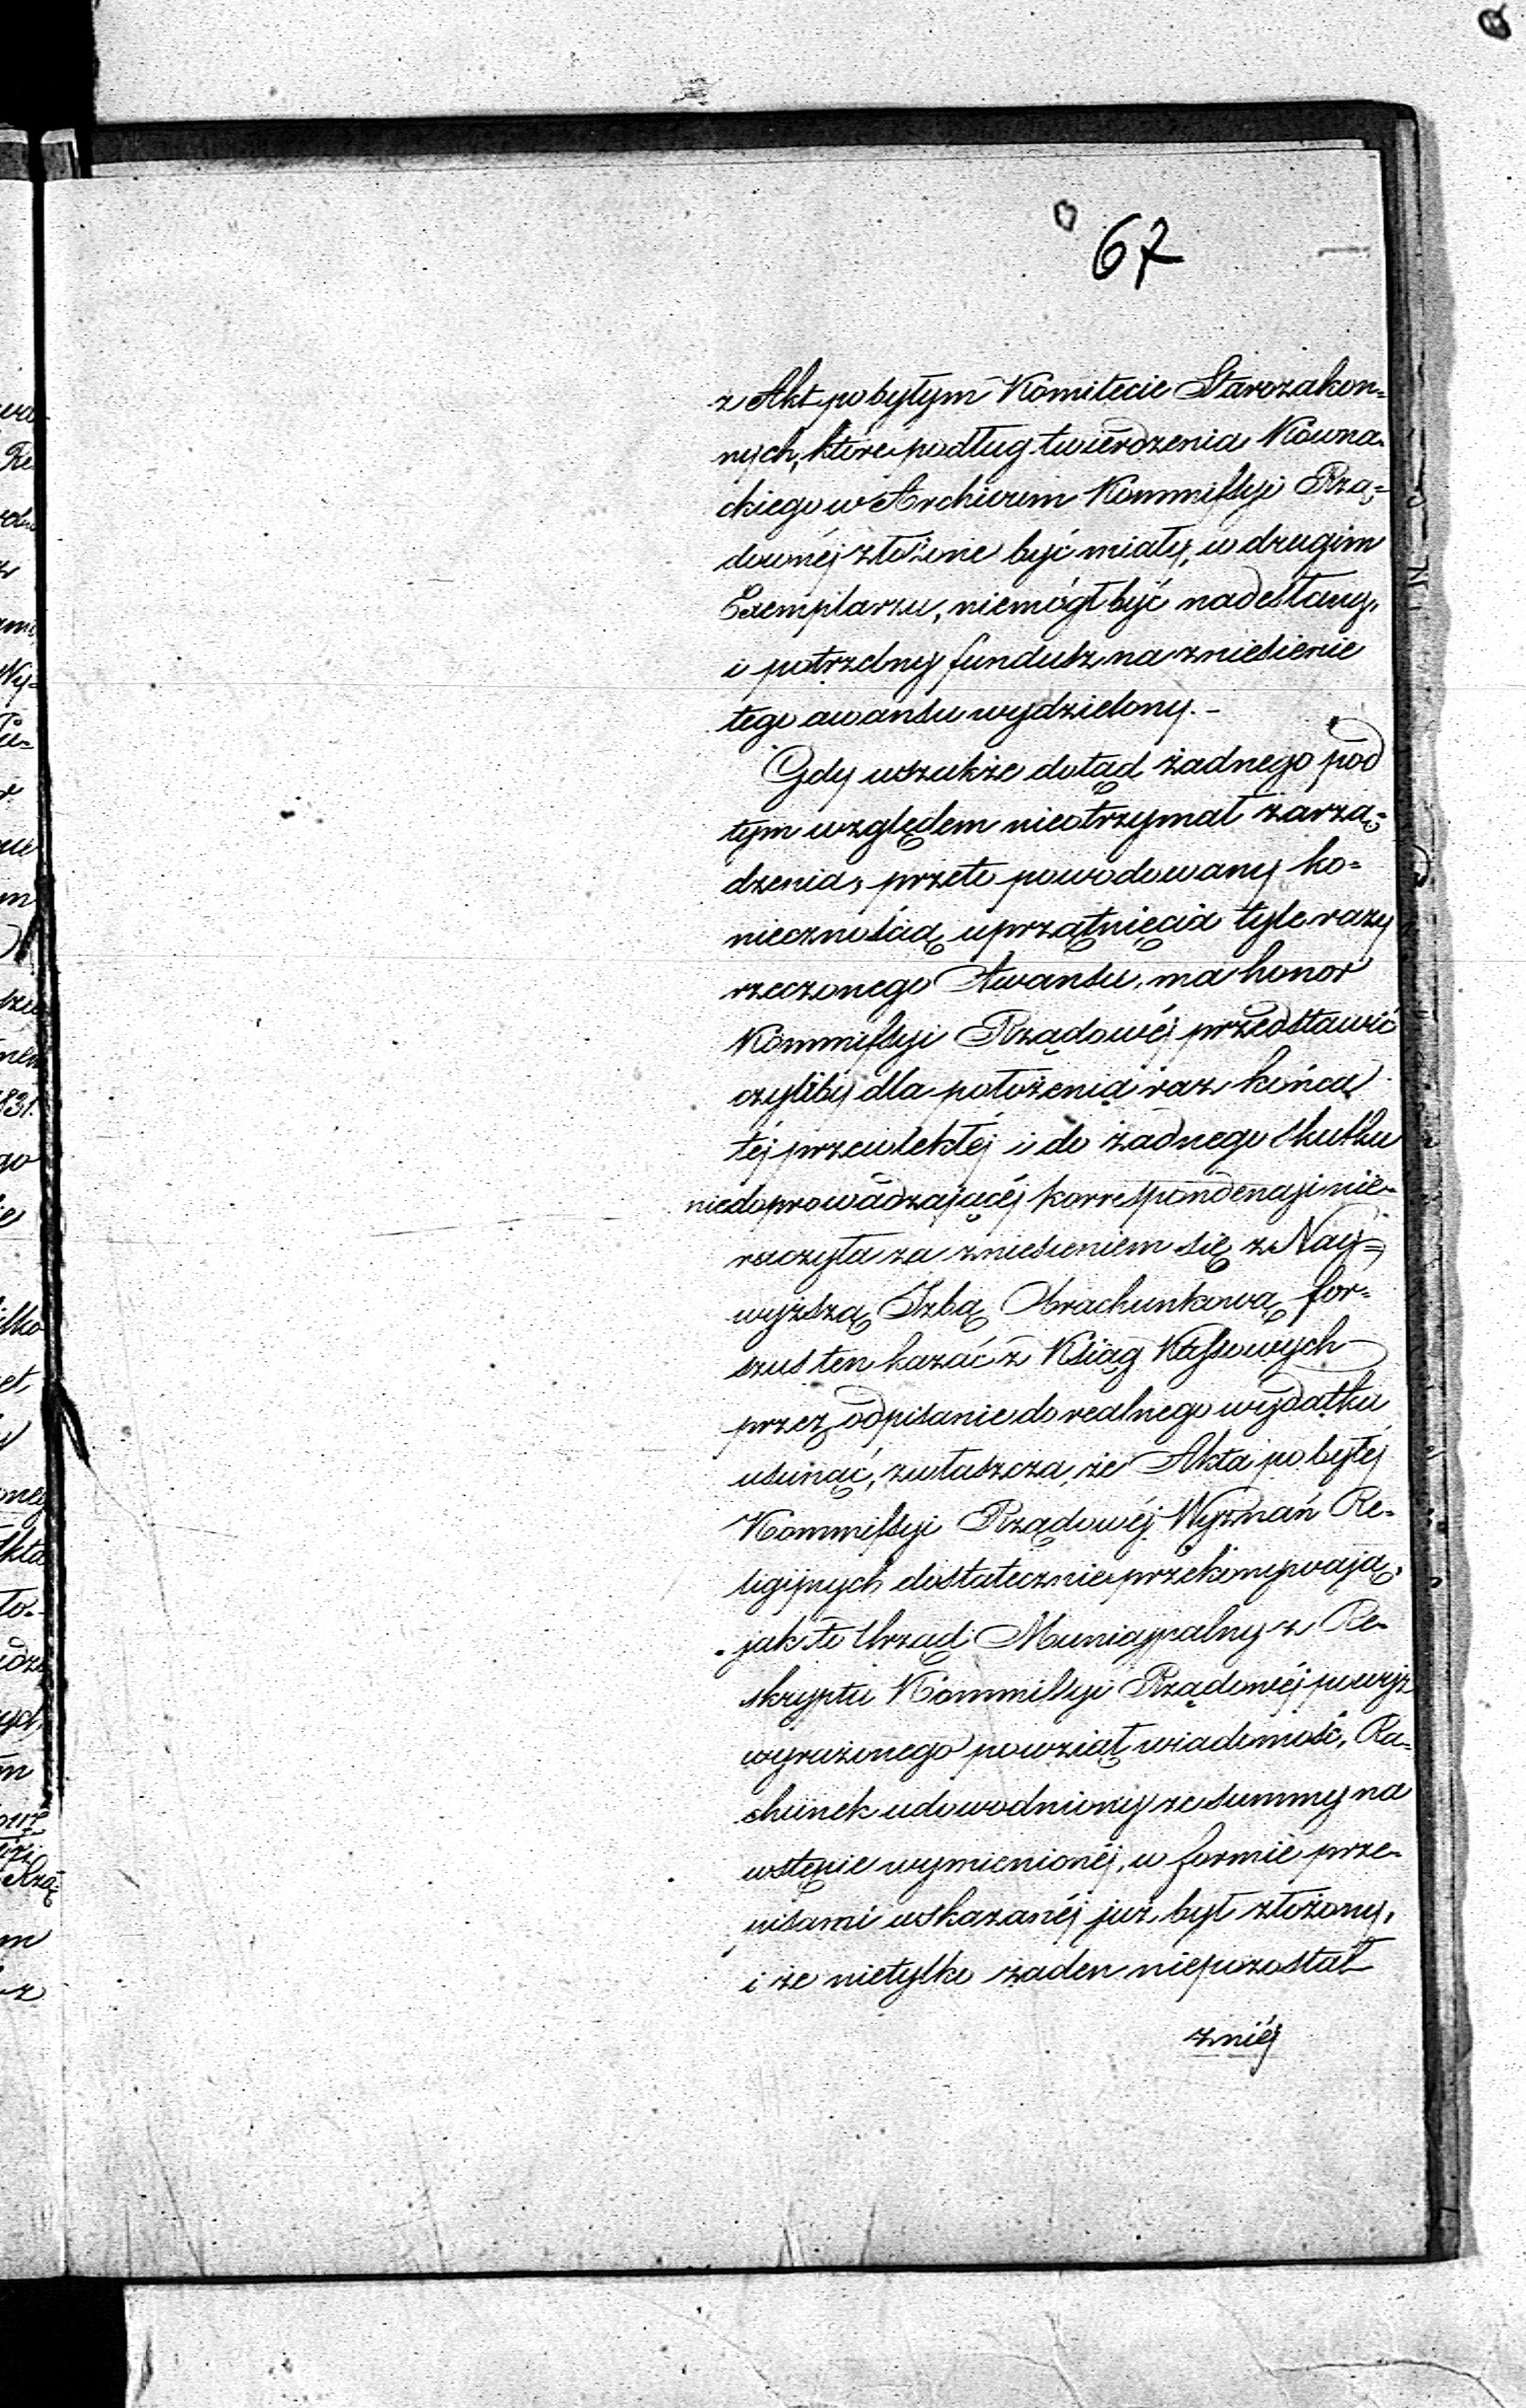 67
z Akt po byłym Komitecie Starozakon=
nych, które podług twierdzenia Kowna=
ckiego w Archiwum Kommissyi Rzą=
dowéj złożone być miały, w drugim
Exemplarzu, niemógł być nadesłany,
i potrzebny fundusz na zniesienie
tego awansu wydzielony.-
Gdy wszakże dotąd żadnego pod
tym względem nieotrzymał zarzą=
dzenia, przeto powodowany ko=
niecznością uprzątnięcia tyle razy
rzeczonego Awansu, ma honor
Kommissyi Rządowéj przedstawić
czyliby dla położenia raz końca
téj przewlekłéj i do żadnego skutku
niedoprowadzającéj korrespondencyi nie=
raczyła za zniesieniem się z Nay=
wyższą Izbą Obrachunkową for=
szus ten kazać z Ksiąg Kassowych
przez odpisanie do realnego wydatku
usunąć, zwłaszcza, że Akta po byłéj
Kommissyi Rządowéj Wyznań Re=
ligijnych dostatecznie przekonywają,
jak to Urząd Municypalny z Re=
skryptu Kommissyi Rządowéj powyż
wyrażonego powziął wiadomość, Ra=
chunek udowodniony ze summy na
wstępie wymienionéj, w formie prze=
pisami wskazanéj już był złożony,
i że nietylko żaden niepozostał
z niéj